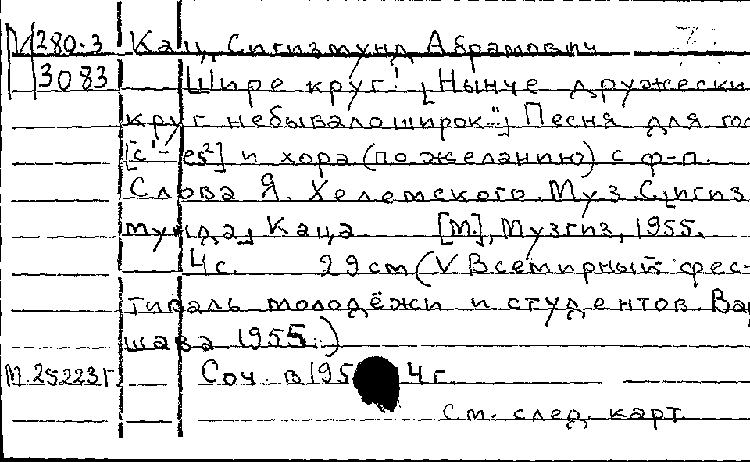 М 280-3 Кац, Сигизмунд Абрамович
3083 Шире круг! „Нынче дружески
круг небывало широк..."; Песня для го
[c'-es²] и хора (по желанию) с ф-п.
Слова Я. Хелемского. Муз. С[игиз
мунда] Каца [М.], Музгиз, 1955.
4 с. 29 cm (V Всемирный фес-
тиваль молодёжи и студентов. Вар
шава 1955.)
М.25223г Соч. в 195 4 г.
См. след. карт